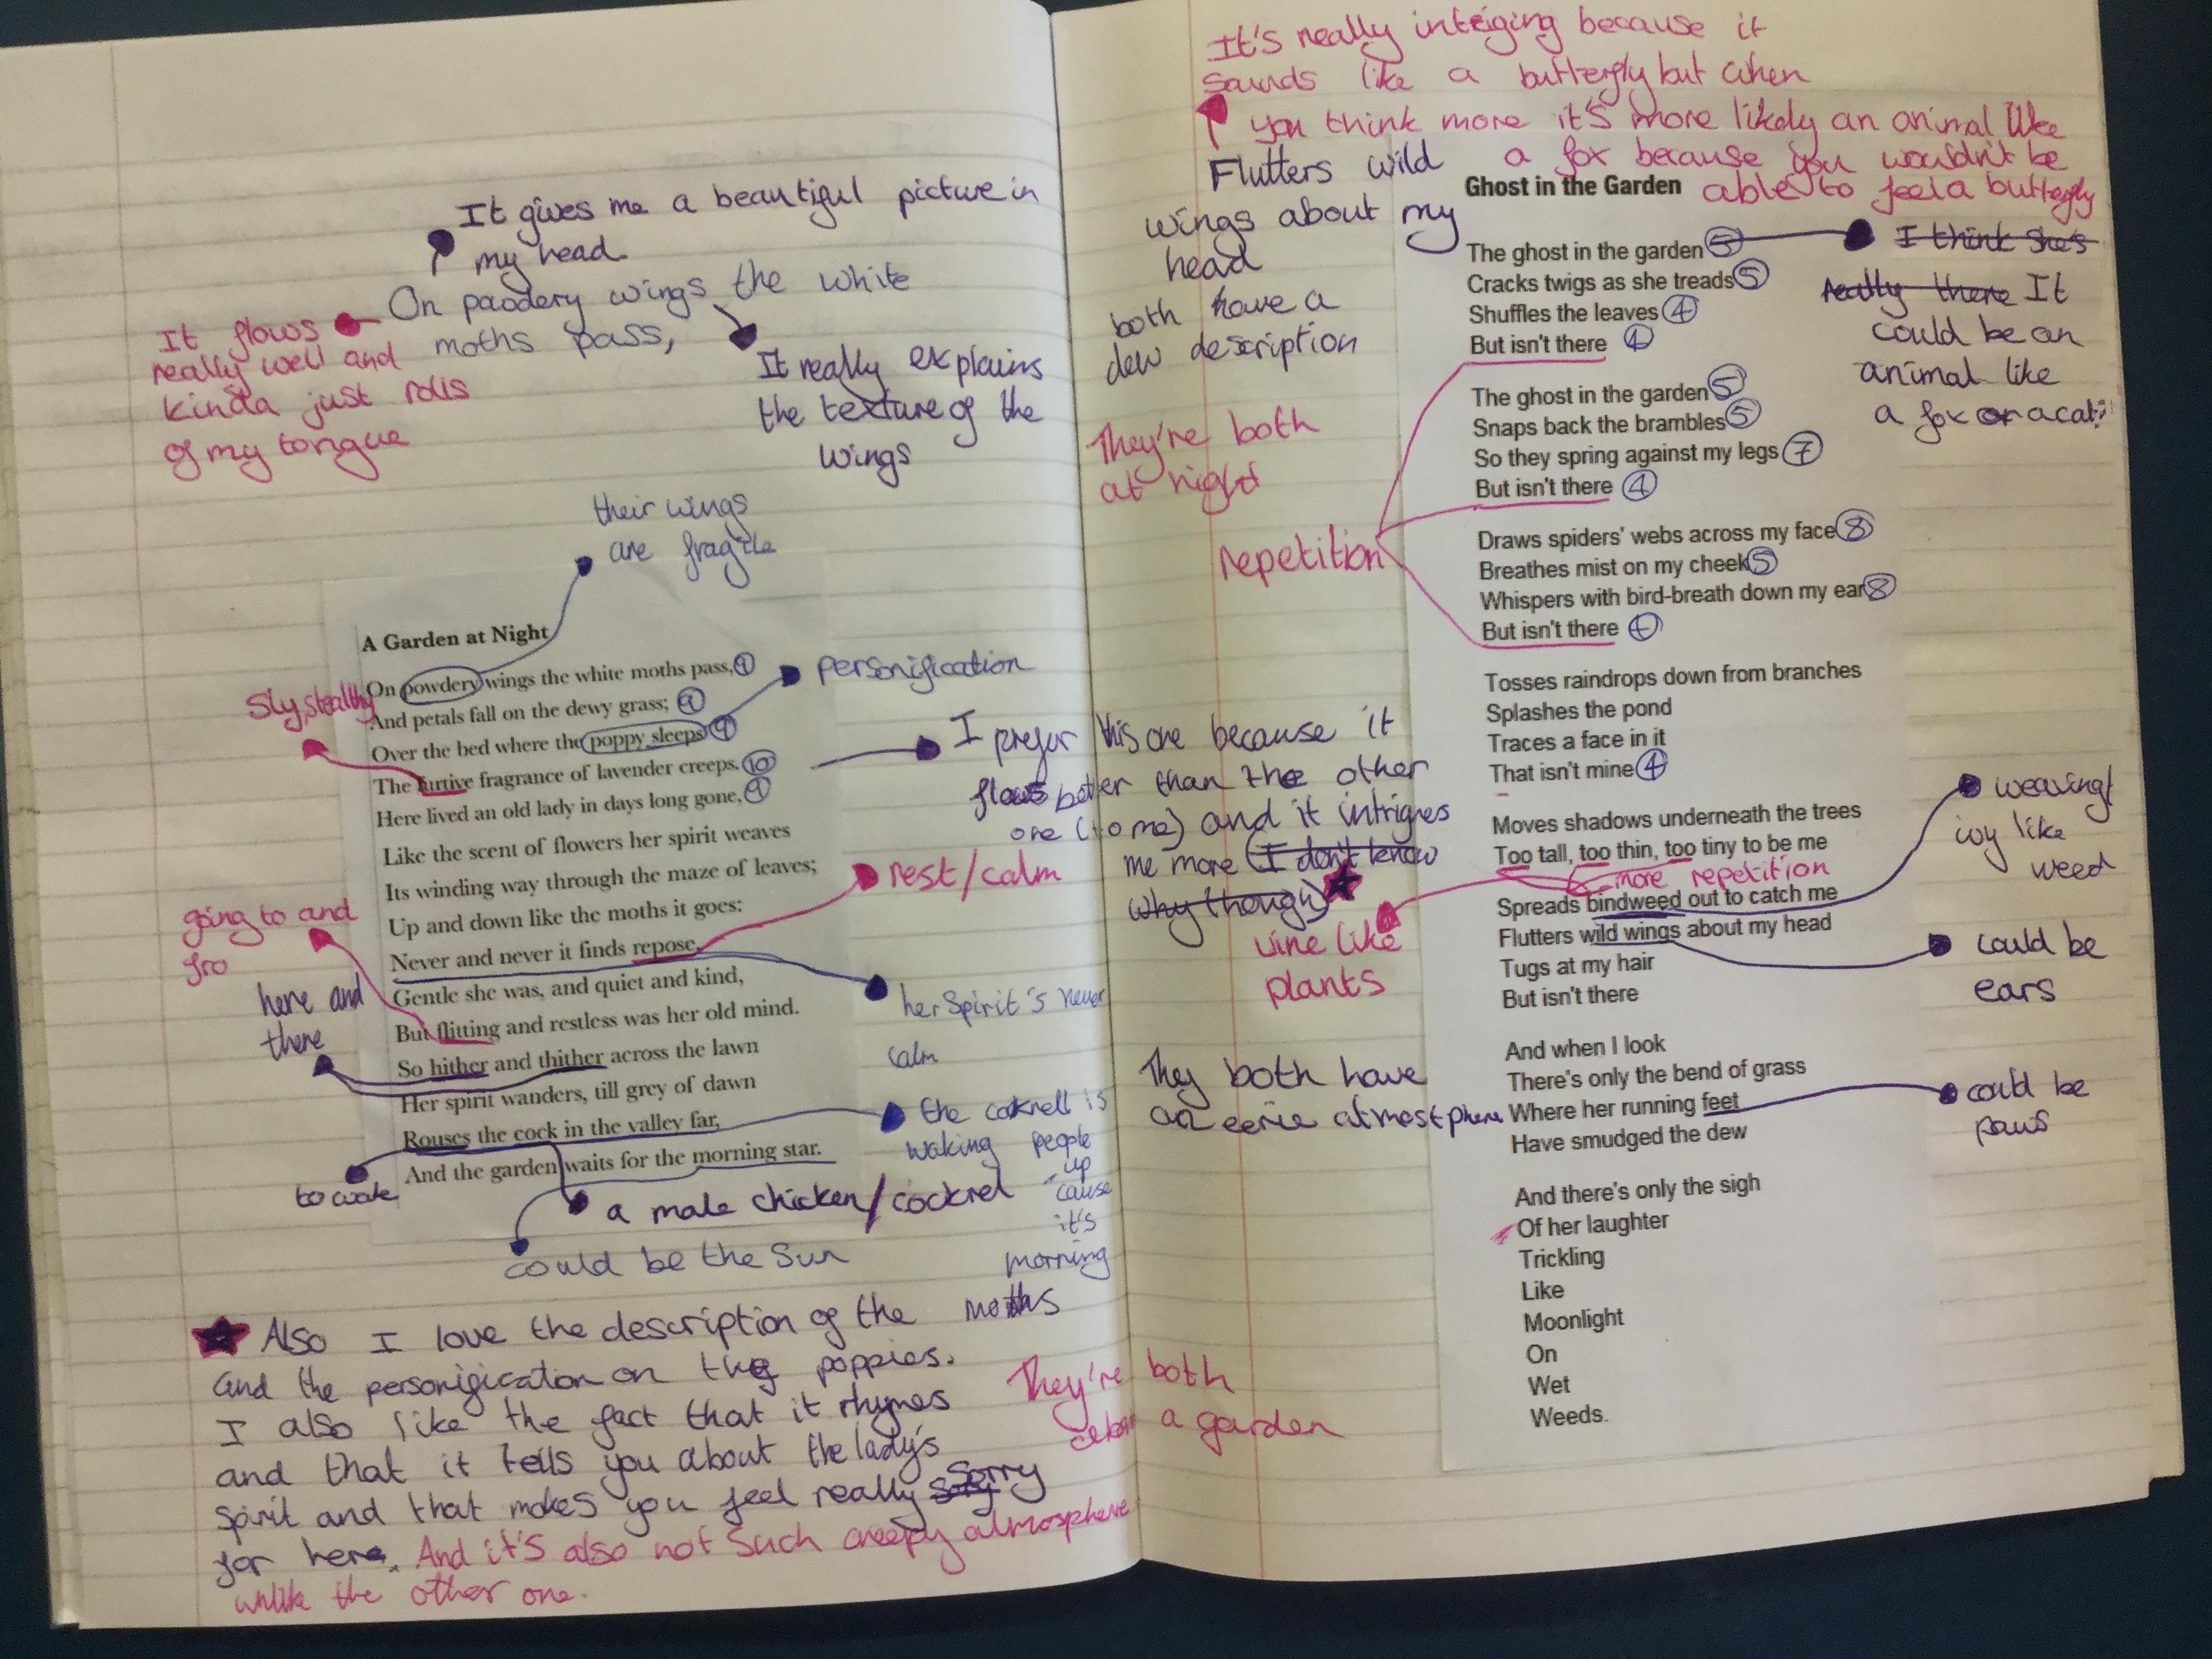 It gives me a beautiful picture in
my head.
On powdery wings the white
moths pass,
It flows
really well and
kinda just rolls
of my tongue
It really explains
the texture of the
wings
their wings
are fragile
A Garden at Night
On powdery wings the white moths pass, 9
And petals fall on the dewy grass; 9
Over the bed where the poppy sleeps 9
The furtive fragrance of lavender creeps. 10
Here lived an old lady in days long gone, 9
Like the scent of flowers her spirit weaves
Its winding way through the maze of leaves;
Up and down like the moths it goes:
Never and never it finds repose.
Gentle she was, and quiet and kind,
But flitting and restless was her old mind.
So hither and thither across the lawn
Her spirit wanders, till grey of dawn
Rouses the cock in the valley far,
And the garden waits for the morning star.
Sly, stealthy
personification
I prefer this one because it
flows better than the other
one (to me) and it intrigues
me more (I don't know
why though)
rest/calm
going to and
fro
here and
there
her spirit's never
calm
the cockrell is
waking people
up
cause
it's
morning
to wake
a male chicken/cockrel
could be the Sun
Also I love the description of the moths
and the personification on the poppies.
I also like the fact that it rhymes
and that it tells you about the lady's
spirit and that makes you feel really sorry
for here. And it's also not such creepy atmosphere
unlike the other one.
It's really intriging because it
sounds like a butterfly but when
you think more it's more likely an animal like
a fox because you wouldn't be
able to feel a butterfly
Flutters wild
wings about my
head
both have a
dew description
They're both
at night
repetition
vine like
plants
They both have
an eerie atmostphere
They're both
a garden
Ghost in the Garden
The ghost in the garden 5
Cracks twigs as she treads 5
Shuffles the leaves 4
But isn't there 4
The ghost in the garden 5
Snaps back the brambles 5
So they spring against my legs 7
But isn't there 4
Draws spiders' webs across my face 8
Breathes mist on my cheek 5
Whispers with bird-breath down my ear 8
But isn't there 4
Tosses raindrops down from branches
Splashes the pond
Traces a face in it
That isn't mine 4
Moves shadows underneath the trees
Too tall, too thin, too tiny to be me
more repetition
Spreads bindweed out to catch me
Flutters wild wings about my head
Tugs at my hair
But isn't there
And when I look
There's only the bend of grass
Where her running feet
Have smudged the dew
And there's only the sigh
Of her laughter
Trickling
Like
Moonlight
On
Wet
Weeds.
I think she's
really there It
could be an
animal like
a fox or a cat
weaving/
ivy like
weed
could be
ears
could be
paws